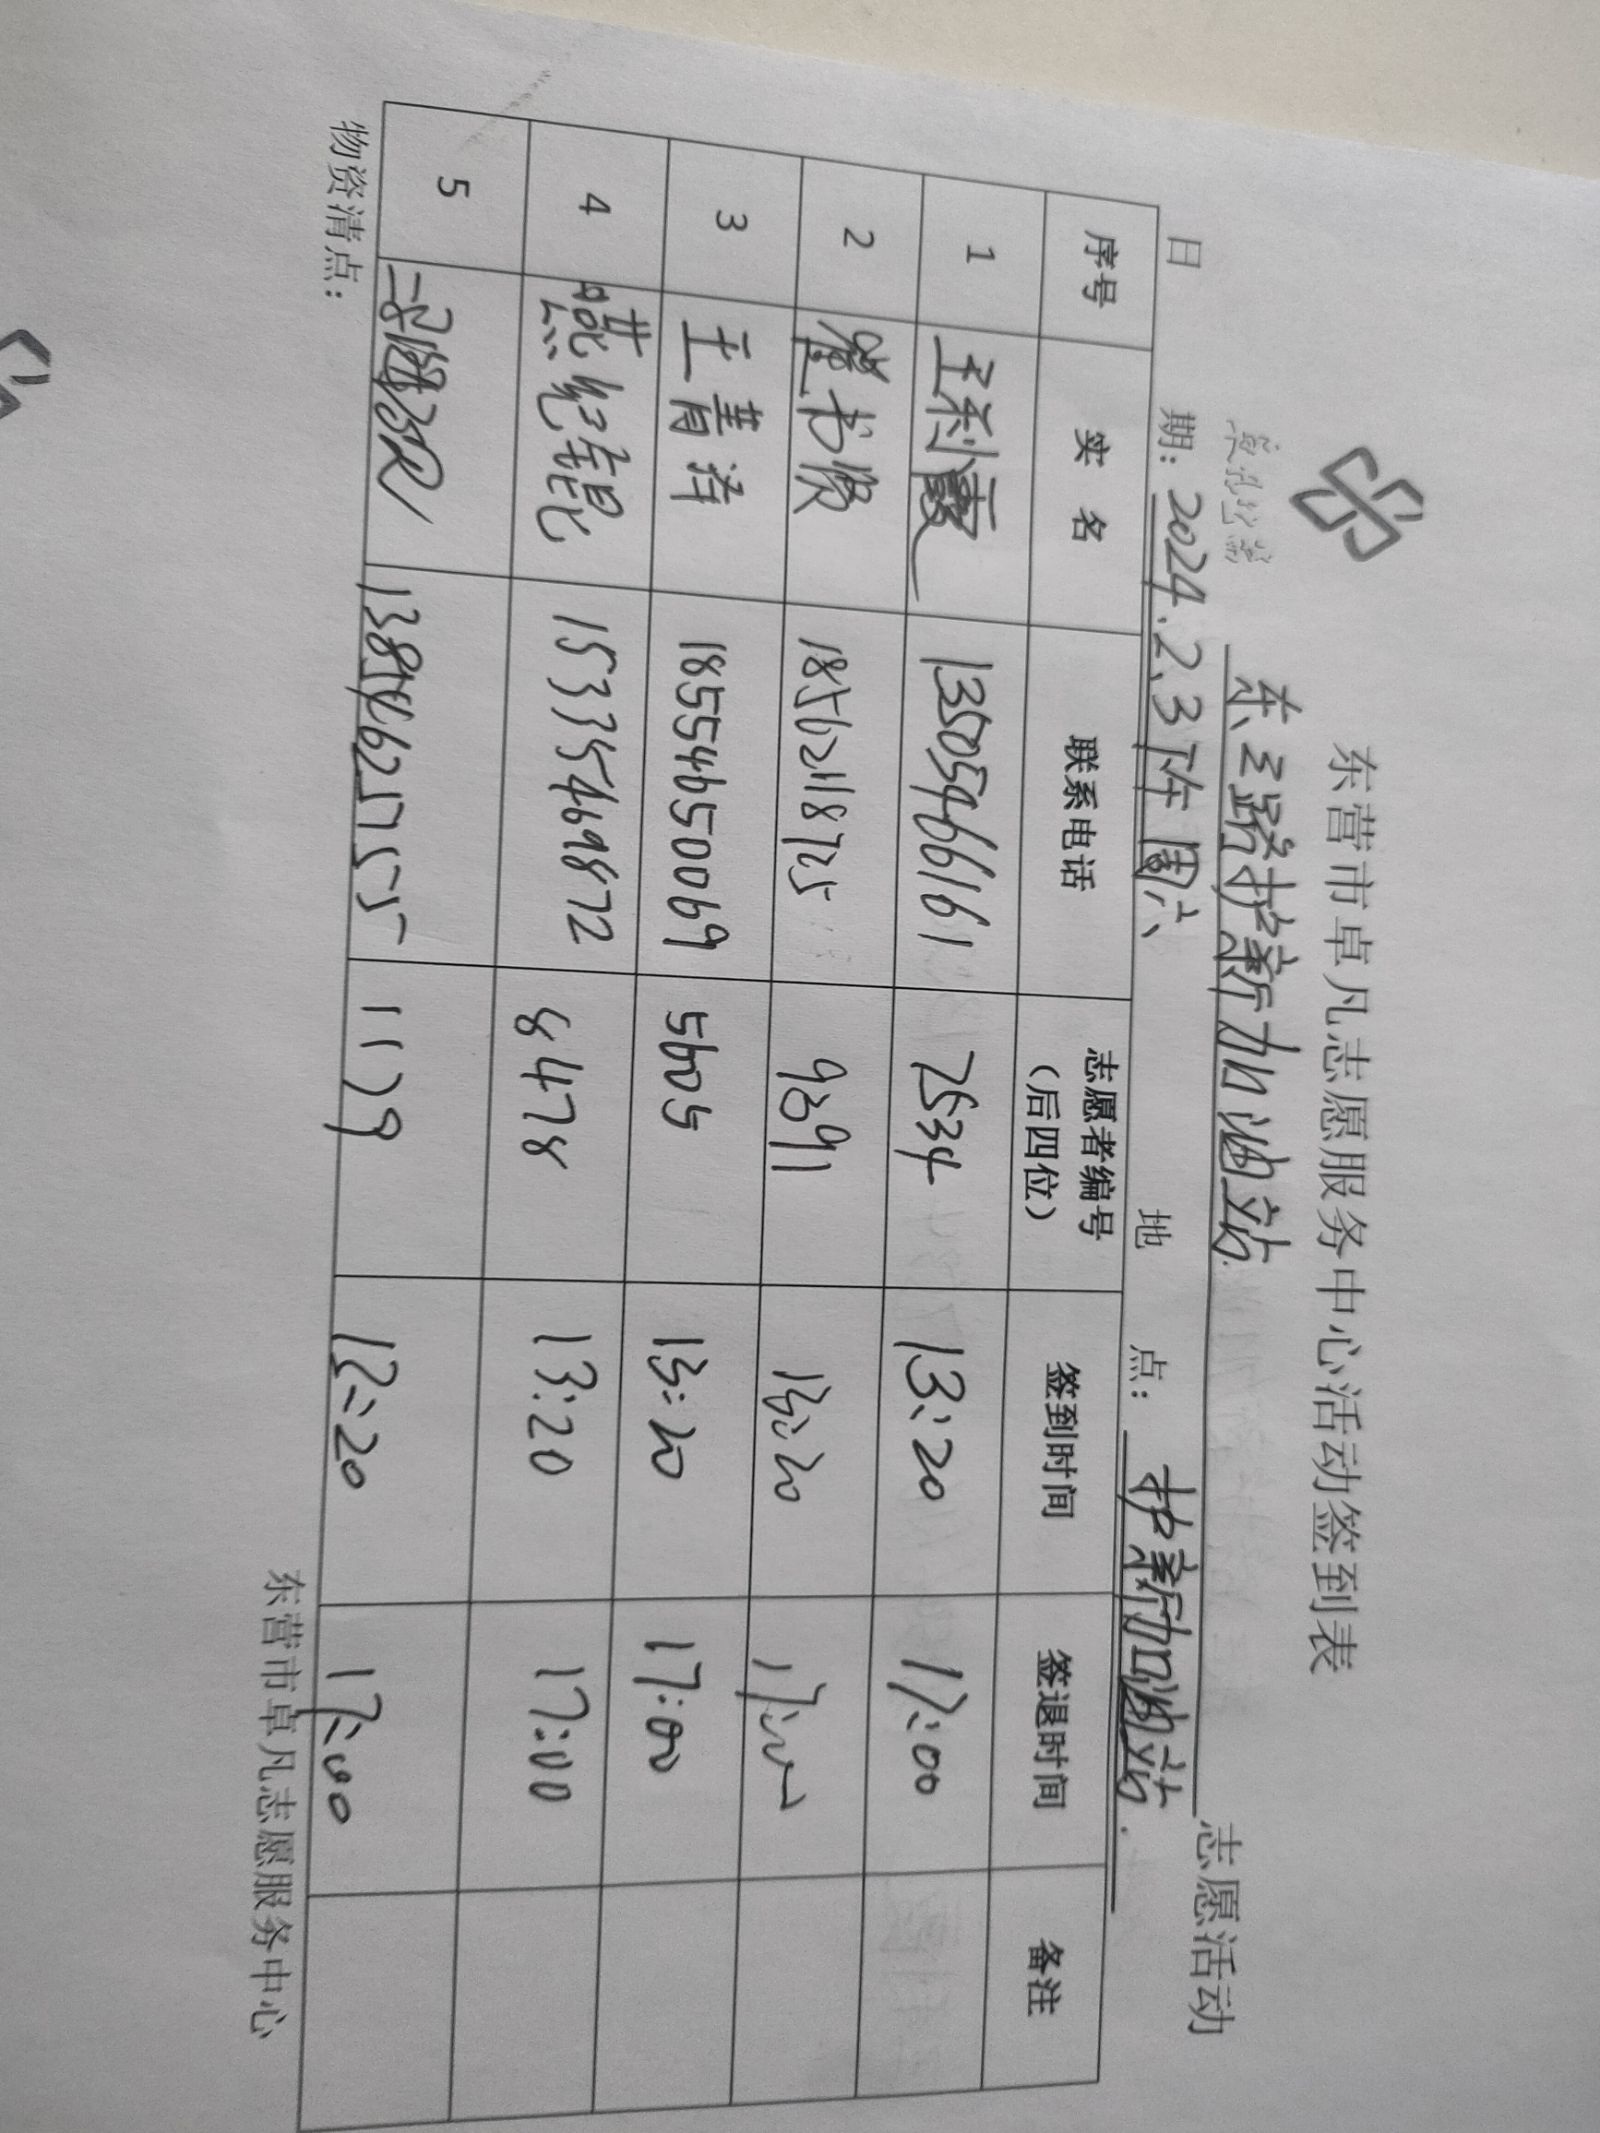 东营市卓凡志愿服务中心活动签到表
东三路护新加油站 志愿活动
日 期: 2024.2.3下午周六 地 点: 护新加油站.
序号 实 名 联系电话 志愿者编号(后四位) 签到时间 签退时间 备注
1 王利霞 13505466161 7534 13:20 17:00
2 18562118725 9391 13:20 17:00
3 王青泽 18554650069 5605 13:20 17:00
4 纪锟 15335469872 8478 13:20 17:00
5 1119 13:20 17:00
物资清点:
东营市卓凡志愿服务中心